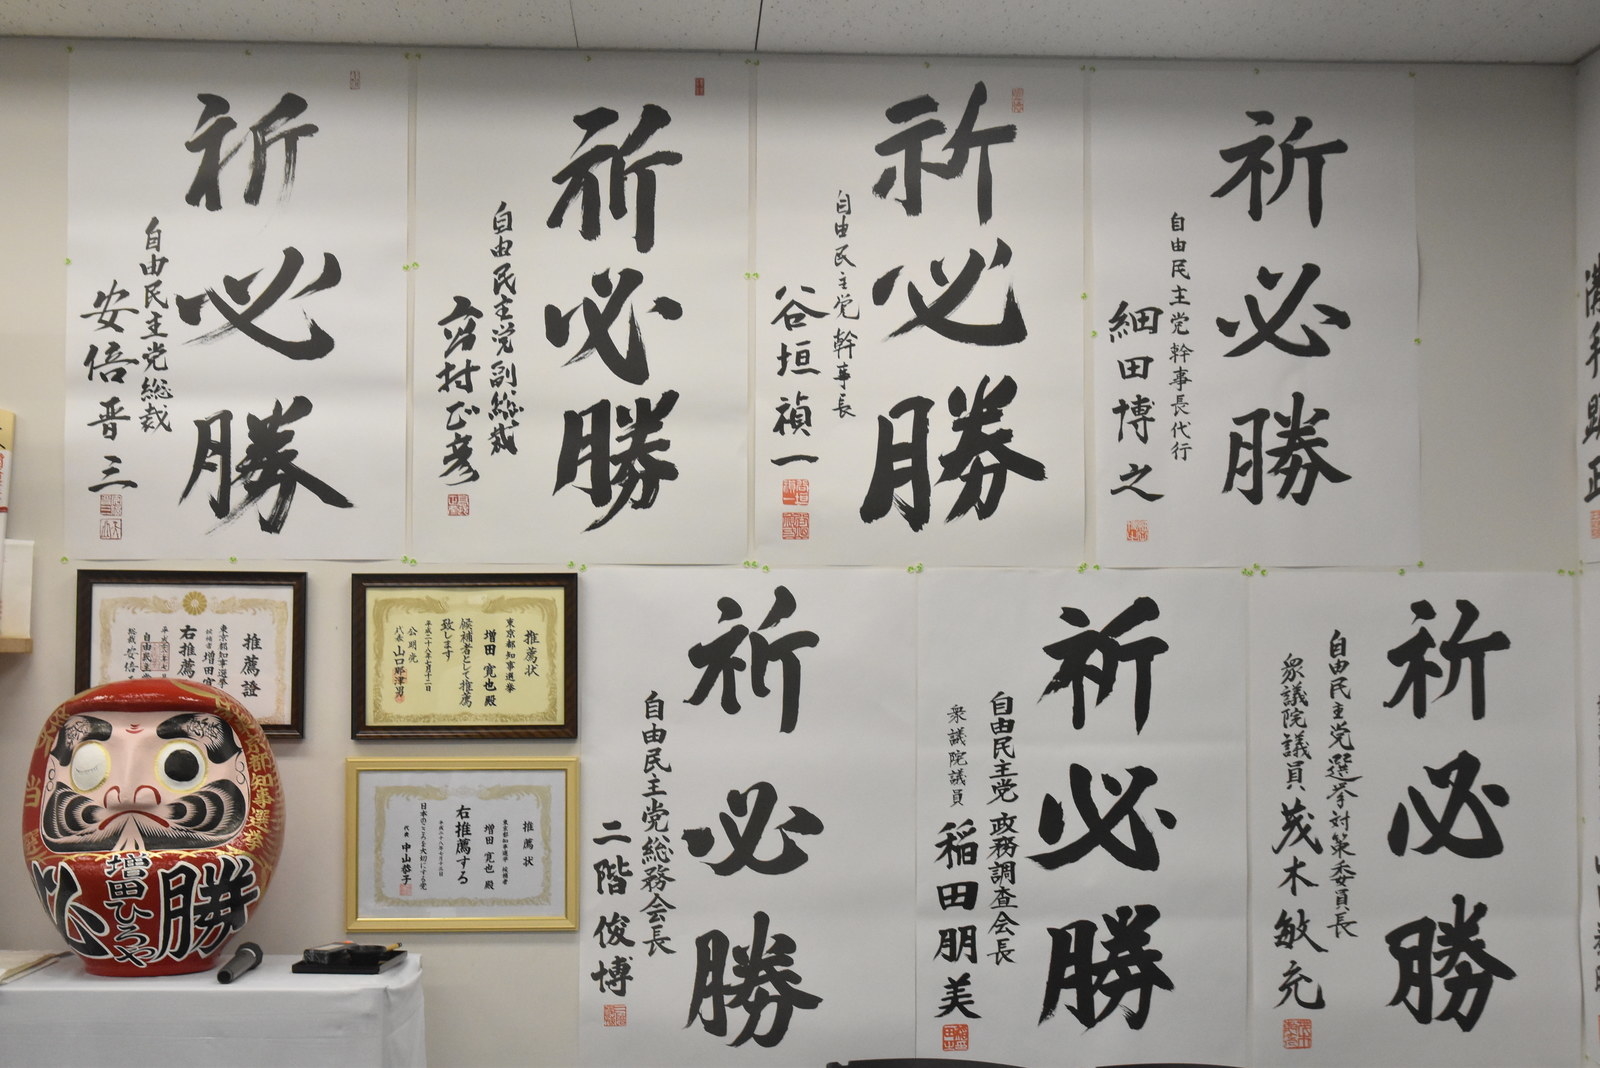 祈必勝
自由民主党総裁
安倍晋三
祈必勝
自由民主党副総裁
高村正彦
祈必勝
自由民主党幹事長
谷垣禎一
祈必勝
自由民主党幹事長代行
細田博之
推薦證
東京都知事選挙
候補者 増田寛
右推薦
自由民主
総裁 安倍
推薦状
東京都知事選挙
増田寛也殿
候補者として推薦
致します
平成二十八年七月十二日
公明党
代表 山口那津男
推薦状
東京都知事選挙 候補者
増田寛也殿
右推薦する
日本のこころを大切にする党
代表 中山恭子
祈必勝
自由民主党総務会長
二階俊博
祈必勝
自由民主党政務調査会長
衆議院議員 稲田朋美
祈必勝
自由民主党選挙対策委員長
衆議院議員 茂木敏充
都知事選挙
必勝
増田ひろや